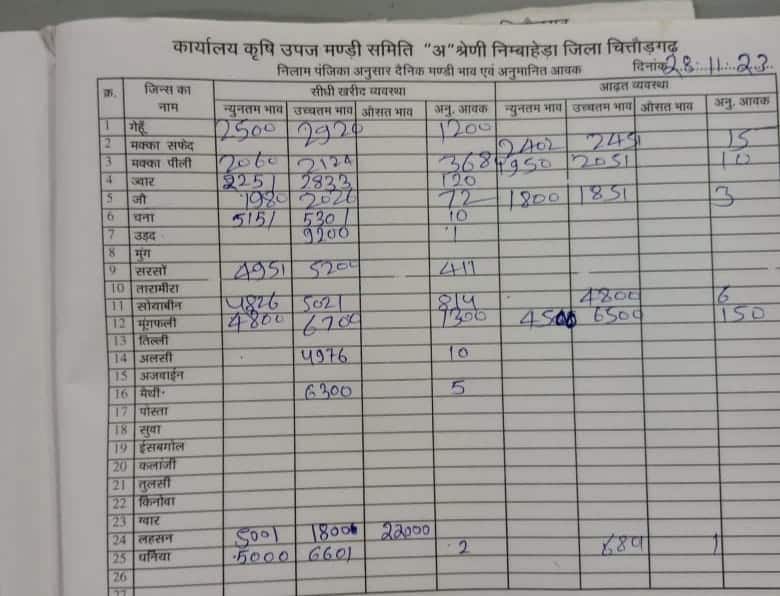 कार्यालय कृषि उपज मण्डी समिति "अ" श्रेणी निम्बाहेड़ा जिला चित्तौड़गढ़
निलाम पंजिका अनुसार दैनिक मण्डी भाव एवं अनुमानित आवक दिनांक 28.11.23
क्र. जिन्स का नाम सीधी खरीद व्यवस्था आढ़त व्यवस्था
न्युनतम भाव उच्चतम भाव औसत भाव अनु. आवक न्युनतम भाव उच्चतम भाव औसत भाव अनु. आवक
1 गेहूँ 2500 2920 1200
2 मक्का सफेद 2402 2451 15
3 मक्का पीली 2060 368 1950 2051 10
4 ज्वार 2251 2833 120
5 जौ 1980 72 1800 1851 3
6 चना 5151 5301 10
7 उड़द 9200 1
8 मुंग
9 सरसों 4951 5200 411
10 तारामीरा
11 सोयाबीन 4826 5021 814 4800 6
12 मूंगफली 4800 6700 1300 4500 6500 150
13 तिल्ली
14 अलसी 4976 10
15 अजवाईन
16 मैथी 6300 5
17 पोस्ता
18 सुवा
19 ईसबगोल
20 कलांजी
21 तुलसी
22 किनोवा
23 ग्वार
24 लहसन 5001 18000 22000
25 धनिया 5000 6601 2 1
26
27